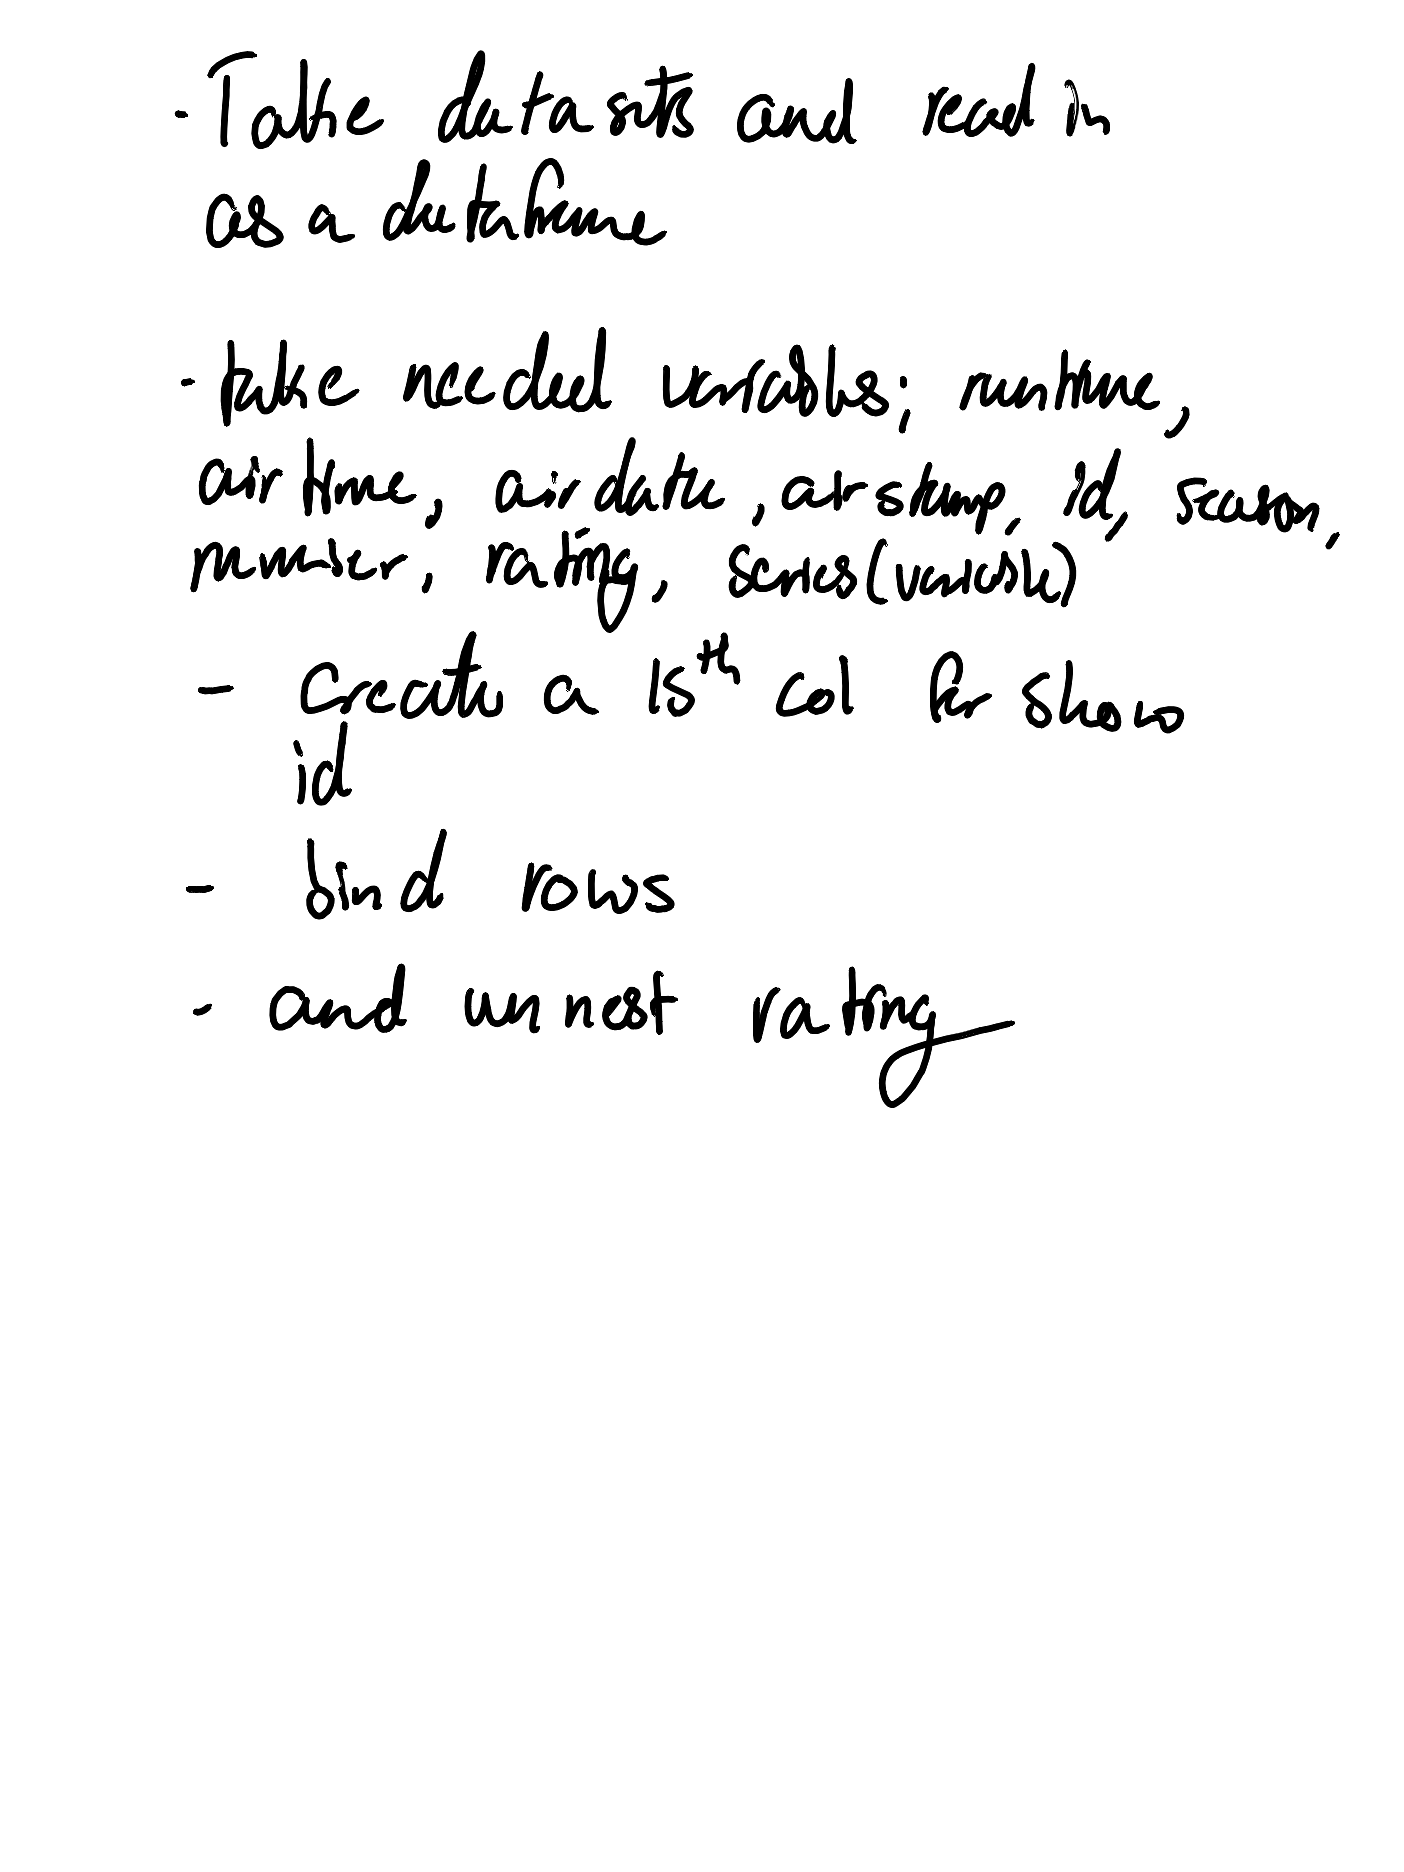 - Take datasets and read in
as a dataframe
- take needed variables; runtime,
airtime, airdate, airstamp, id, season,
number, rating, series(variable)
- Create a 15th col for show
id
- bind rows
- and unnest rating